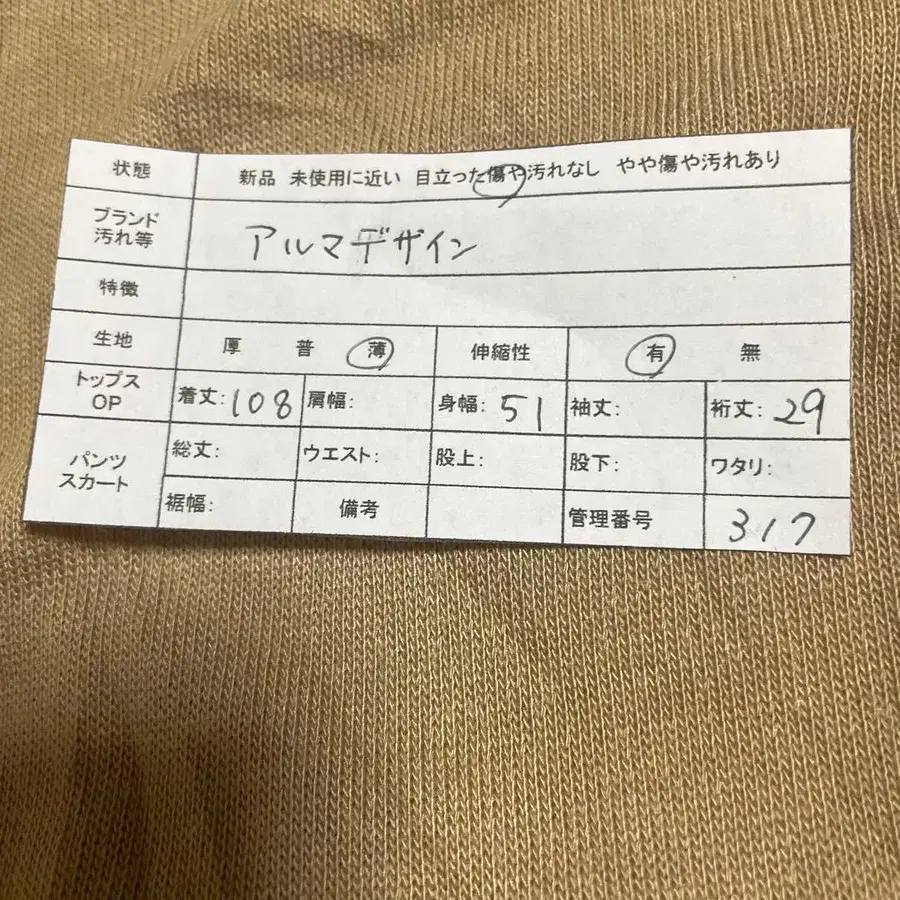 状態 新品 未使用に近い 目立った傷や汚れなし やや傷や汚れあり
ブランド
汚れ等
アルマデザイン
特徴
生地 厚 普 薄 伸縮性 有 無
トップス
OP
着丈:108 肩幅: 身幅:51 袖丈: 裄丈:29
パンツ
スカート
総丈: ウエスト: 股上: 股下: ワタリ:
裾幅: 備考 管理番号 317